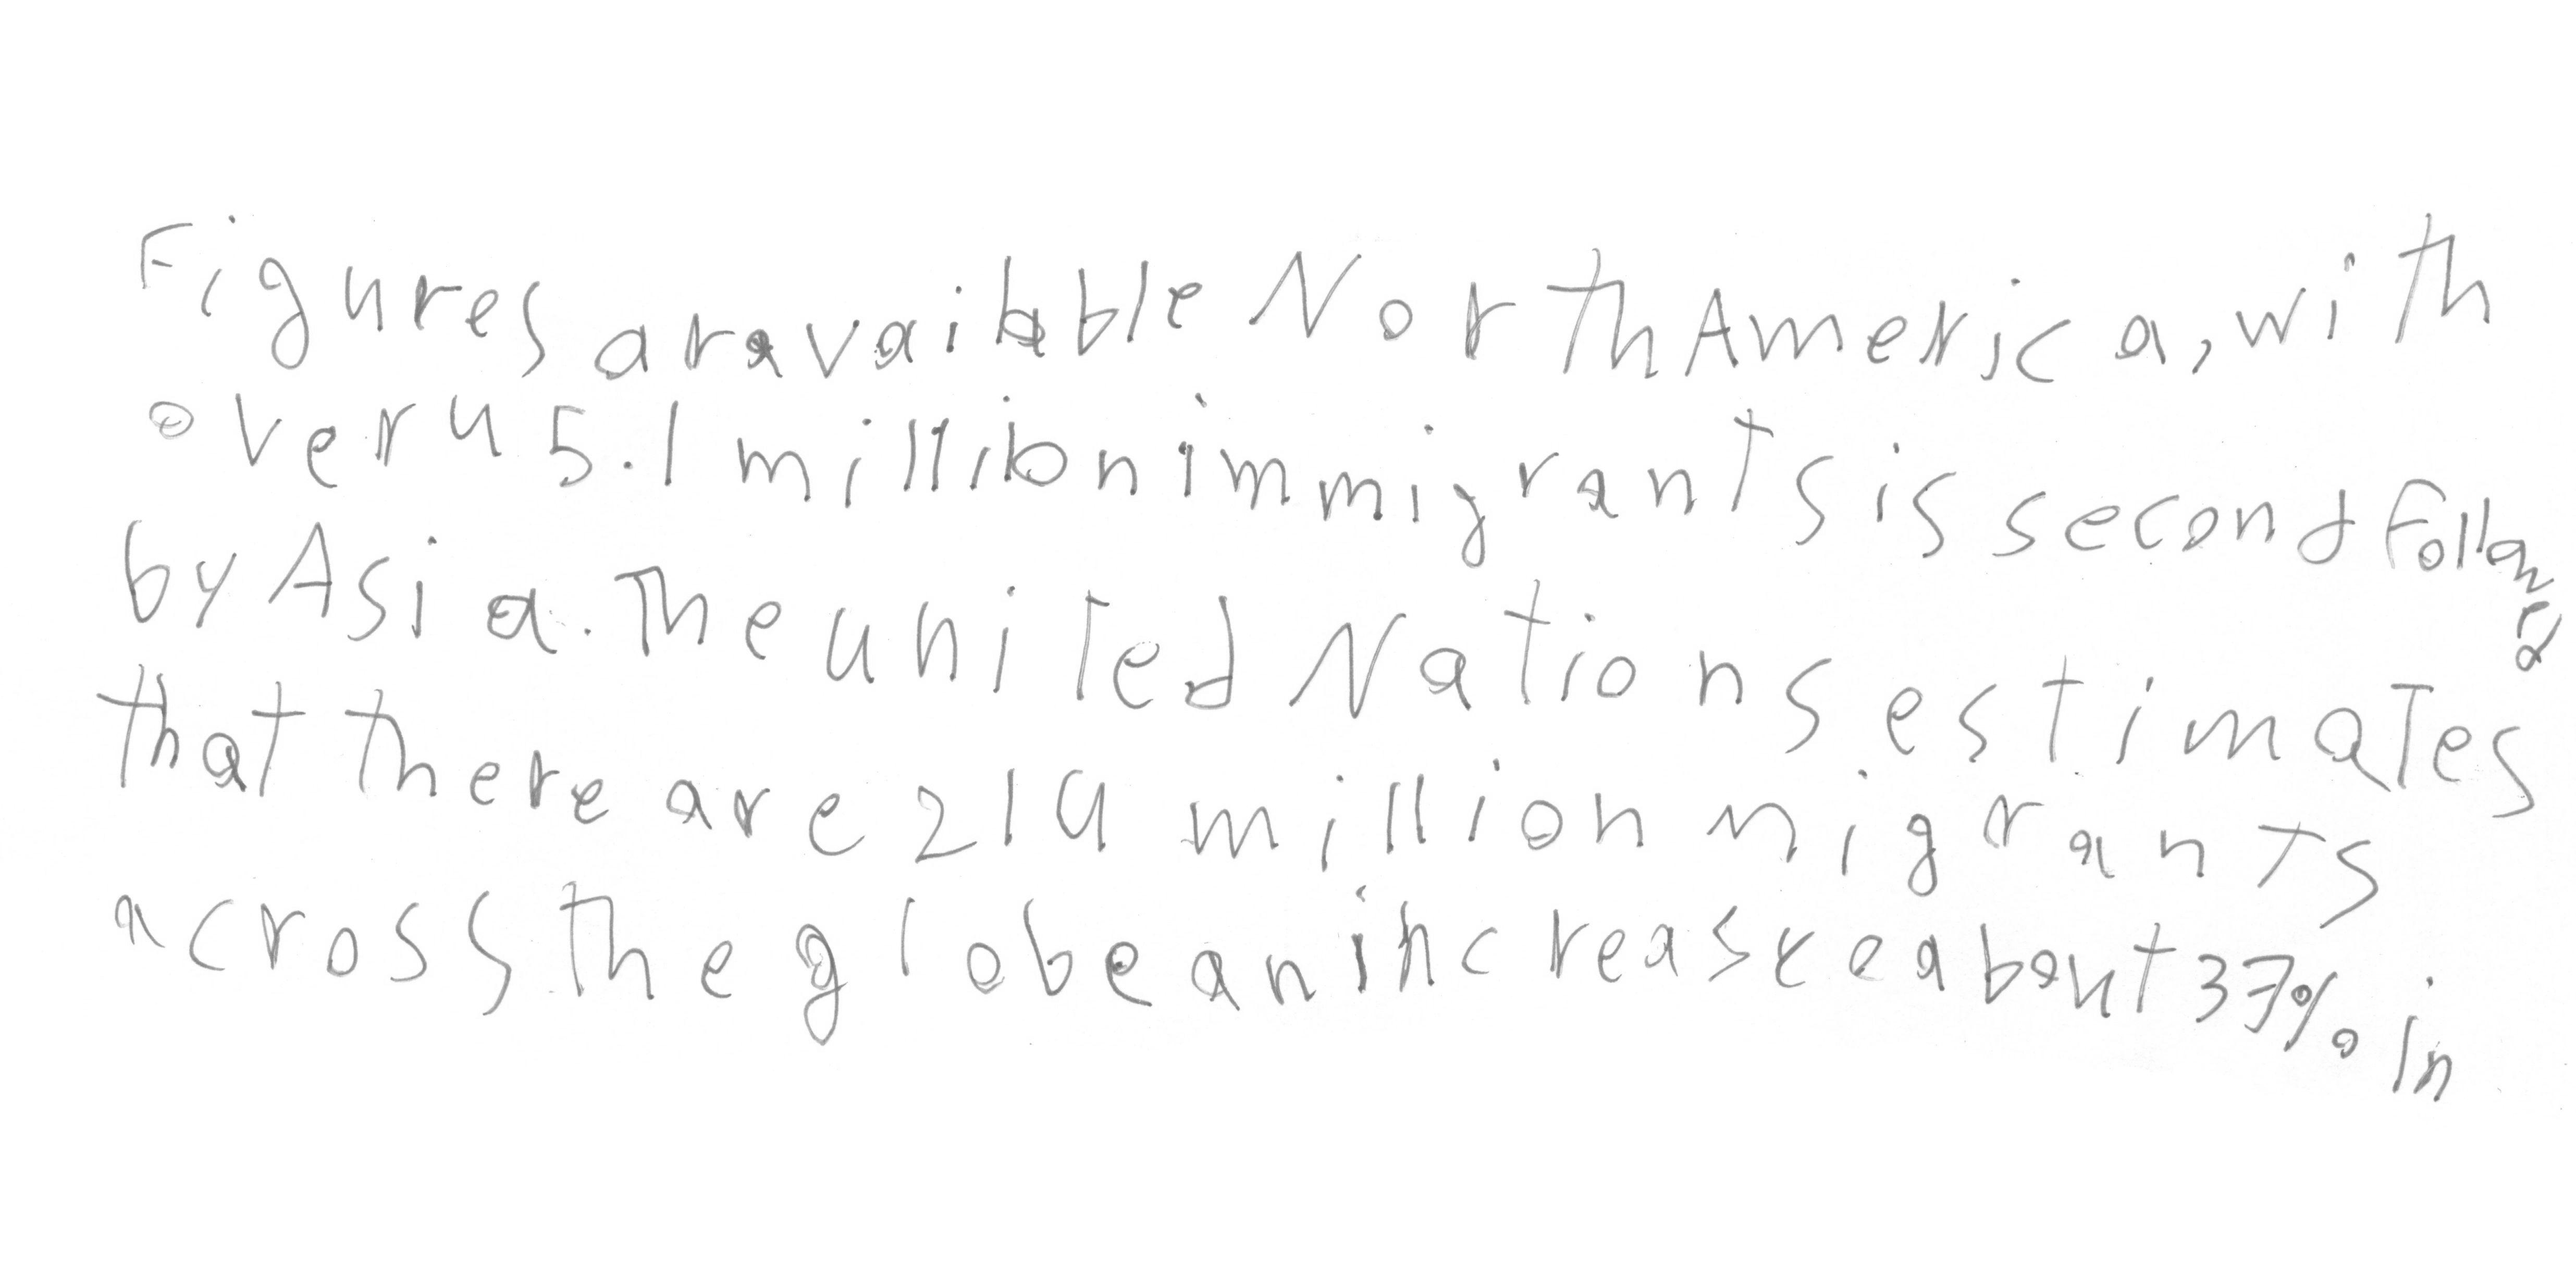 Figures aravailable North America, with
over 45.1 million immigrants is second followed
by Asia. The united Nations estimates
that there are 214 million migrants
across the globe an increase about 37% in